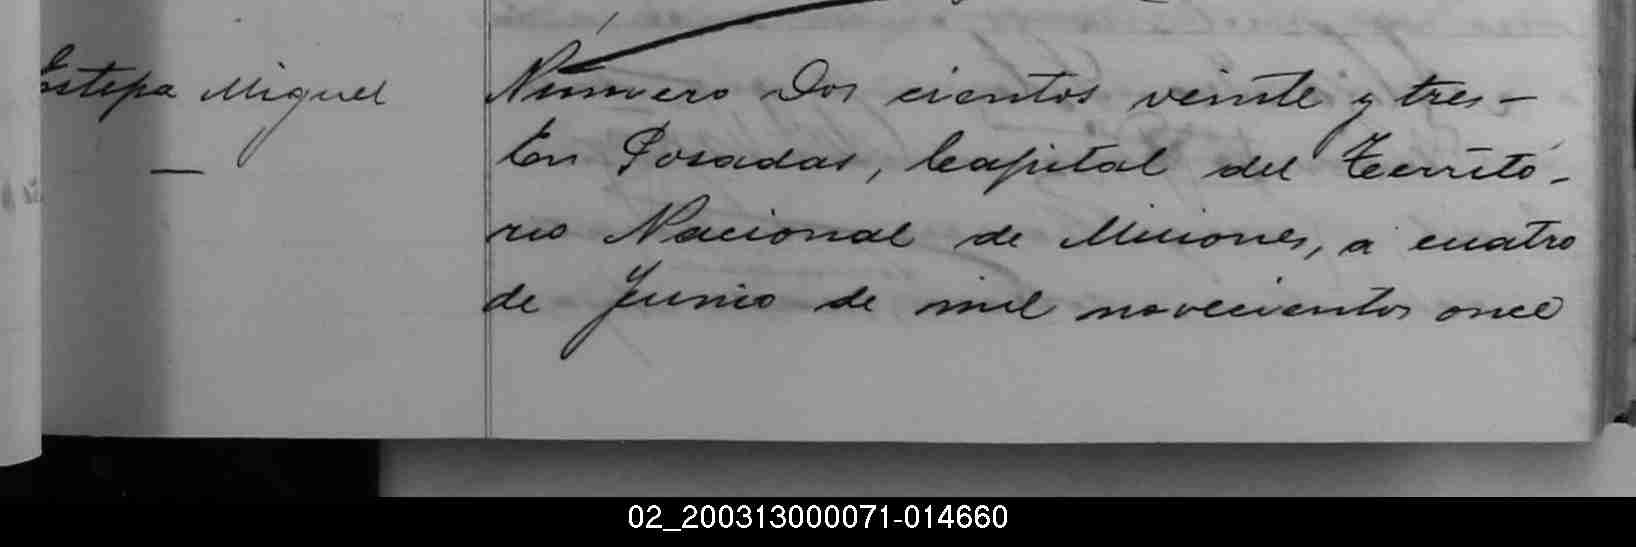 Estepa Miguel
Número Dos cientos veinte y tres -
En Posadas, Capital del Territó-
rio Nacional de Misiones, a cuatro
de Junio de mil novecientos once
02_200313000071-014660